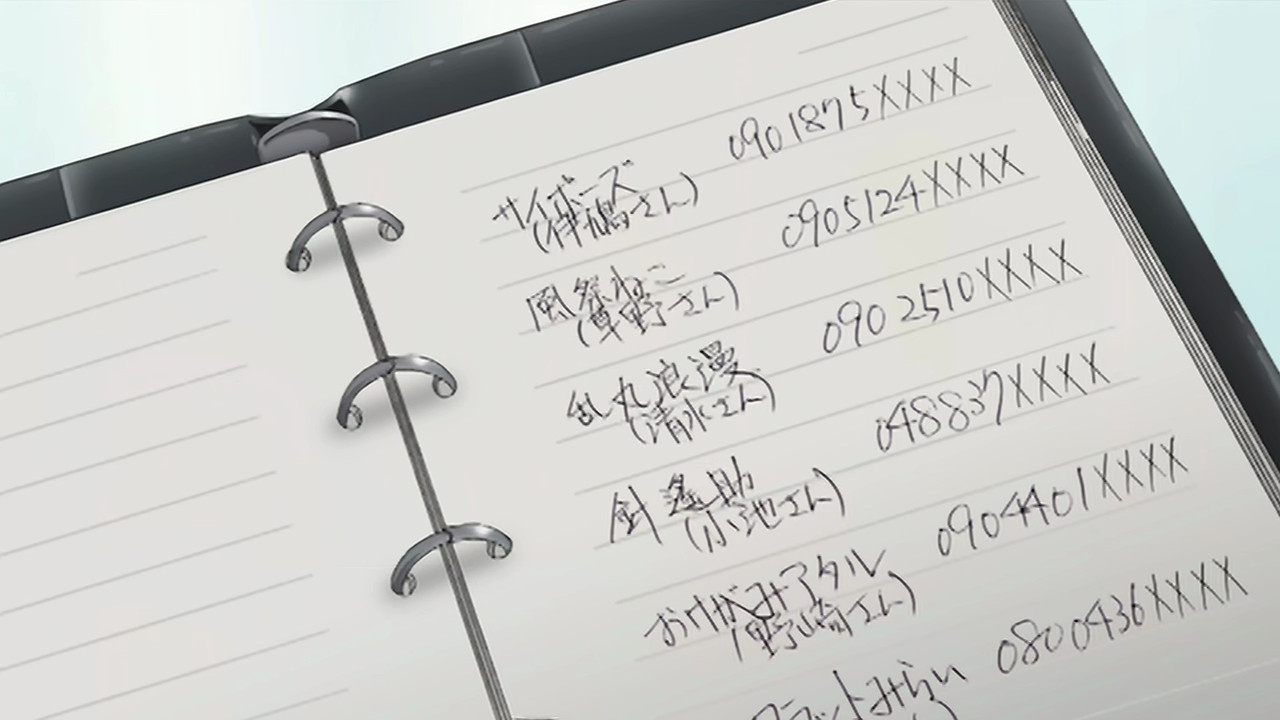 サイボーズ 0901875XXXX
(伊嶋さん)
風祭ねこ 0905124XXXX
(草野さん)
乱丸浪漫 0902510XXXX
(清水さん)
針 遙助 048837XXXX
(小池さん)
おけがみアタル 0904401XXXX
(野崎さん)
みらい 0800436XXXX